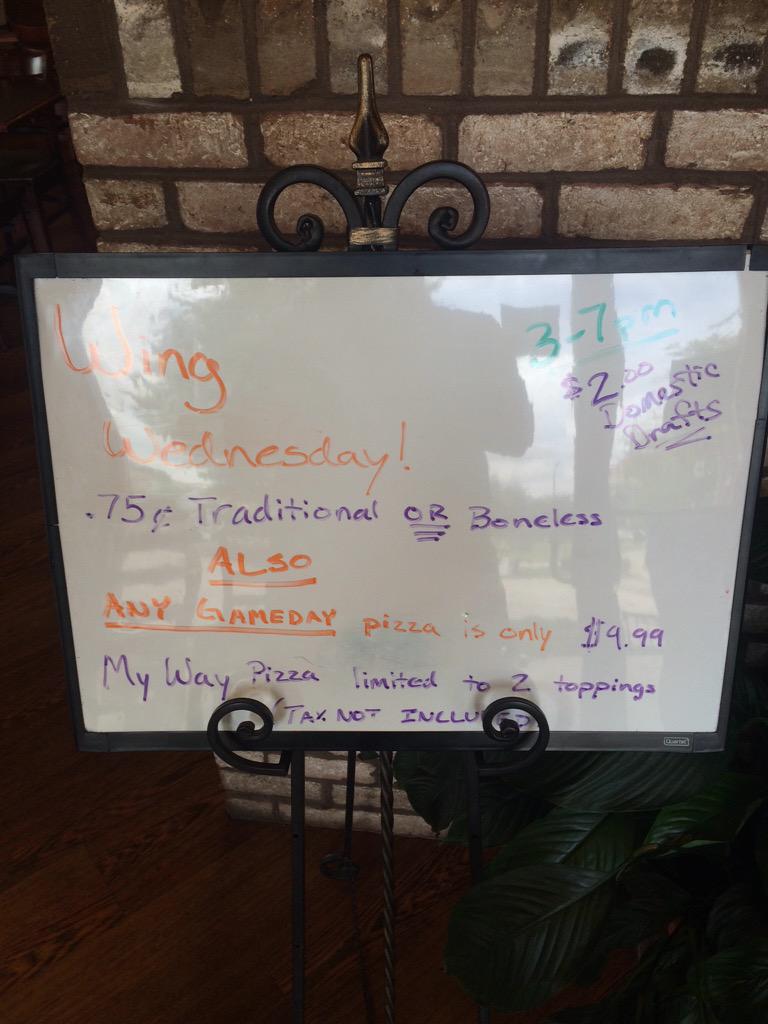 Wing
Wednesday!
3-7pm
$2.00
Domestic
Drafts
.75¢ Traditional OR Boneless
ALSO
ANY GAMEDAY pizza is only $9.99
My Way Pizza limited to 2 toppings
(TAX NOT INCLUDED
Quartet